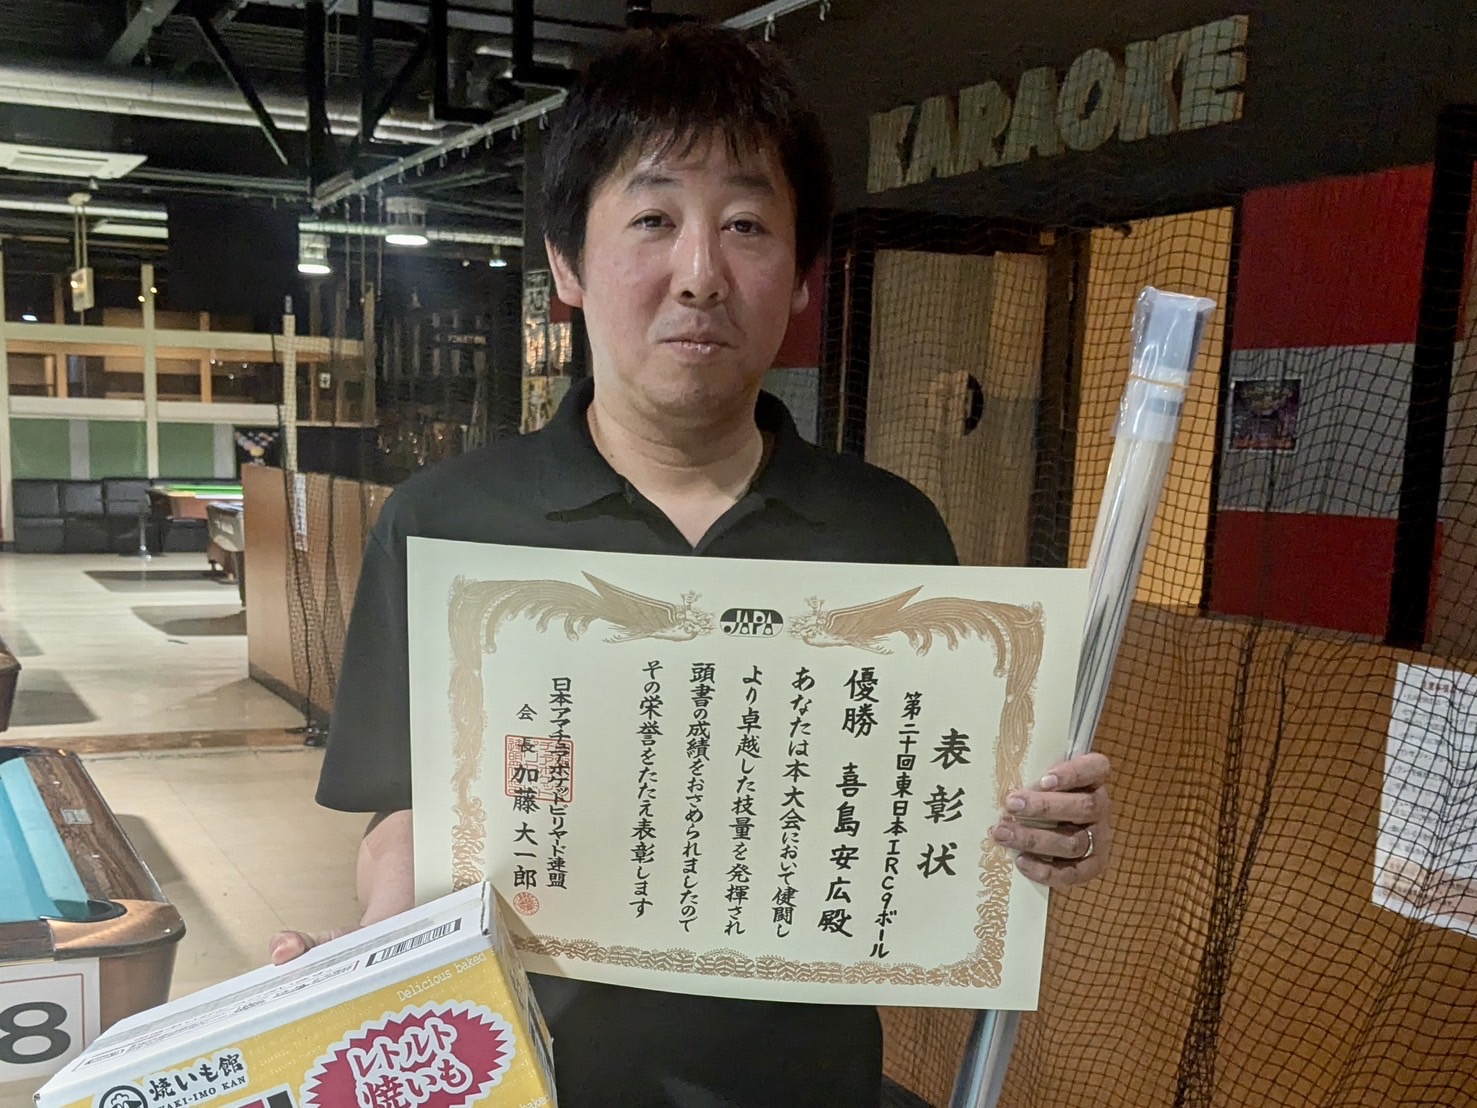 KARAOKE
JAPA
表彰状
第二十回東日本IRC9ボール
優勝 喜島安広殿
あなたは本大会において健闘し
より卓越した技量を発揮され
頭書の成績をおさめられましたので
その栄誉をたたえ表彰します
日本アマチュアポケットビリヤード連盟
会長 加藤大一郎
8
Delicious baked
焼いも館
YAKI-IMO KAN
レトルト
焼いも